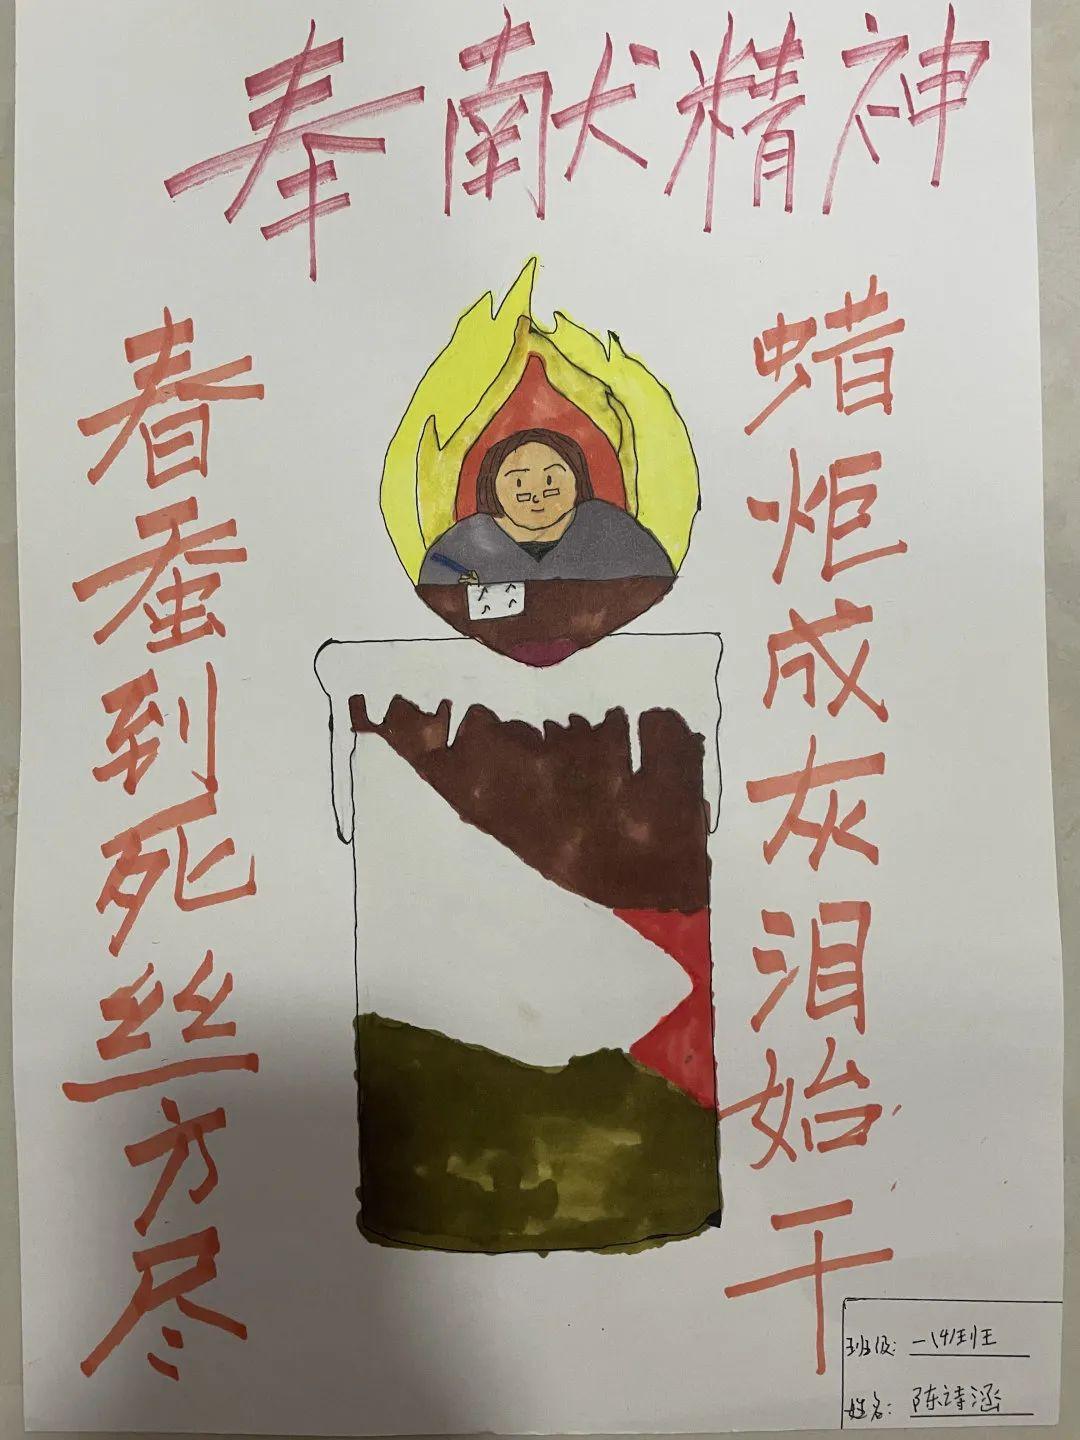 奉献精神
春蚕到死丝方尽
蜡炬成灰泪始干
班级：一(4)班
姓名：陈诗涵